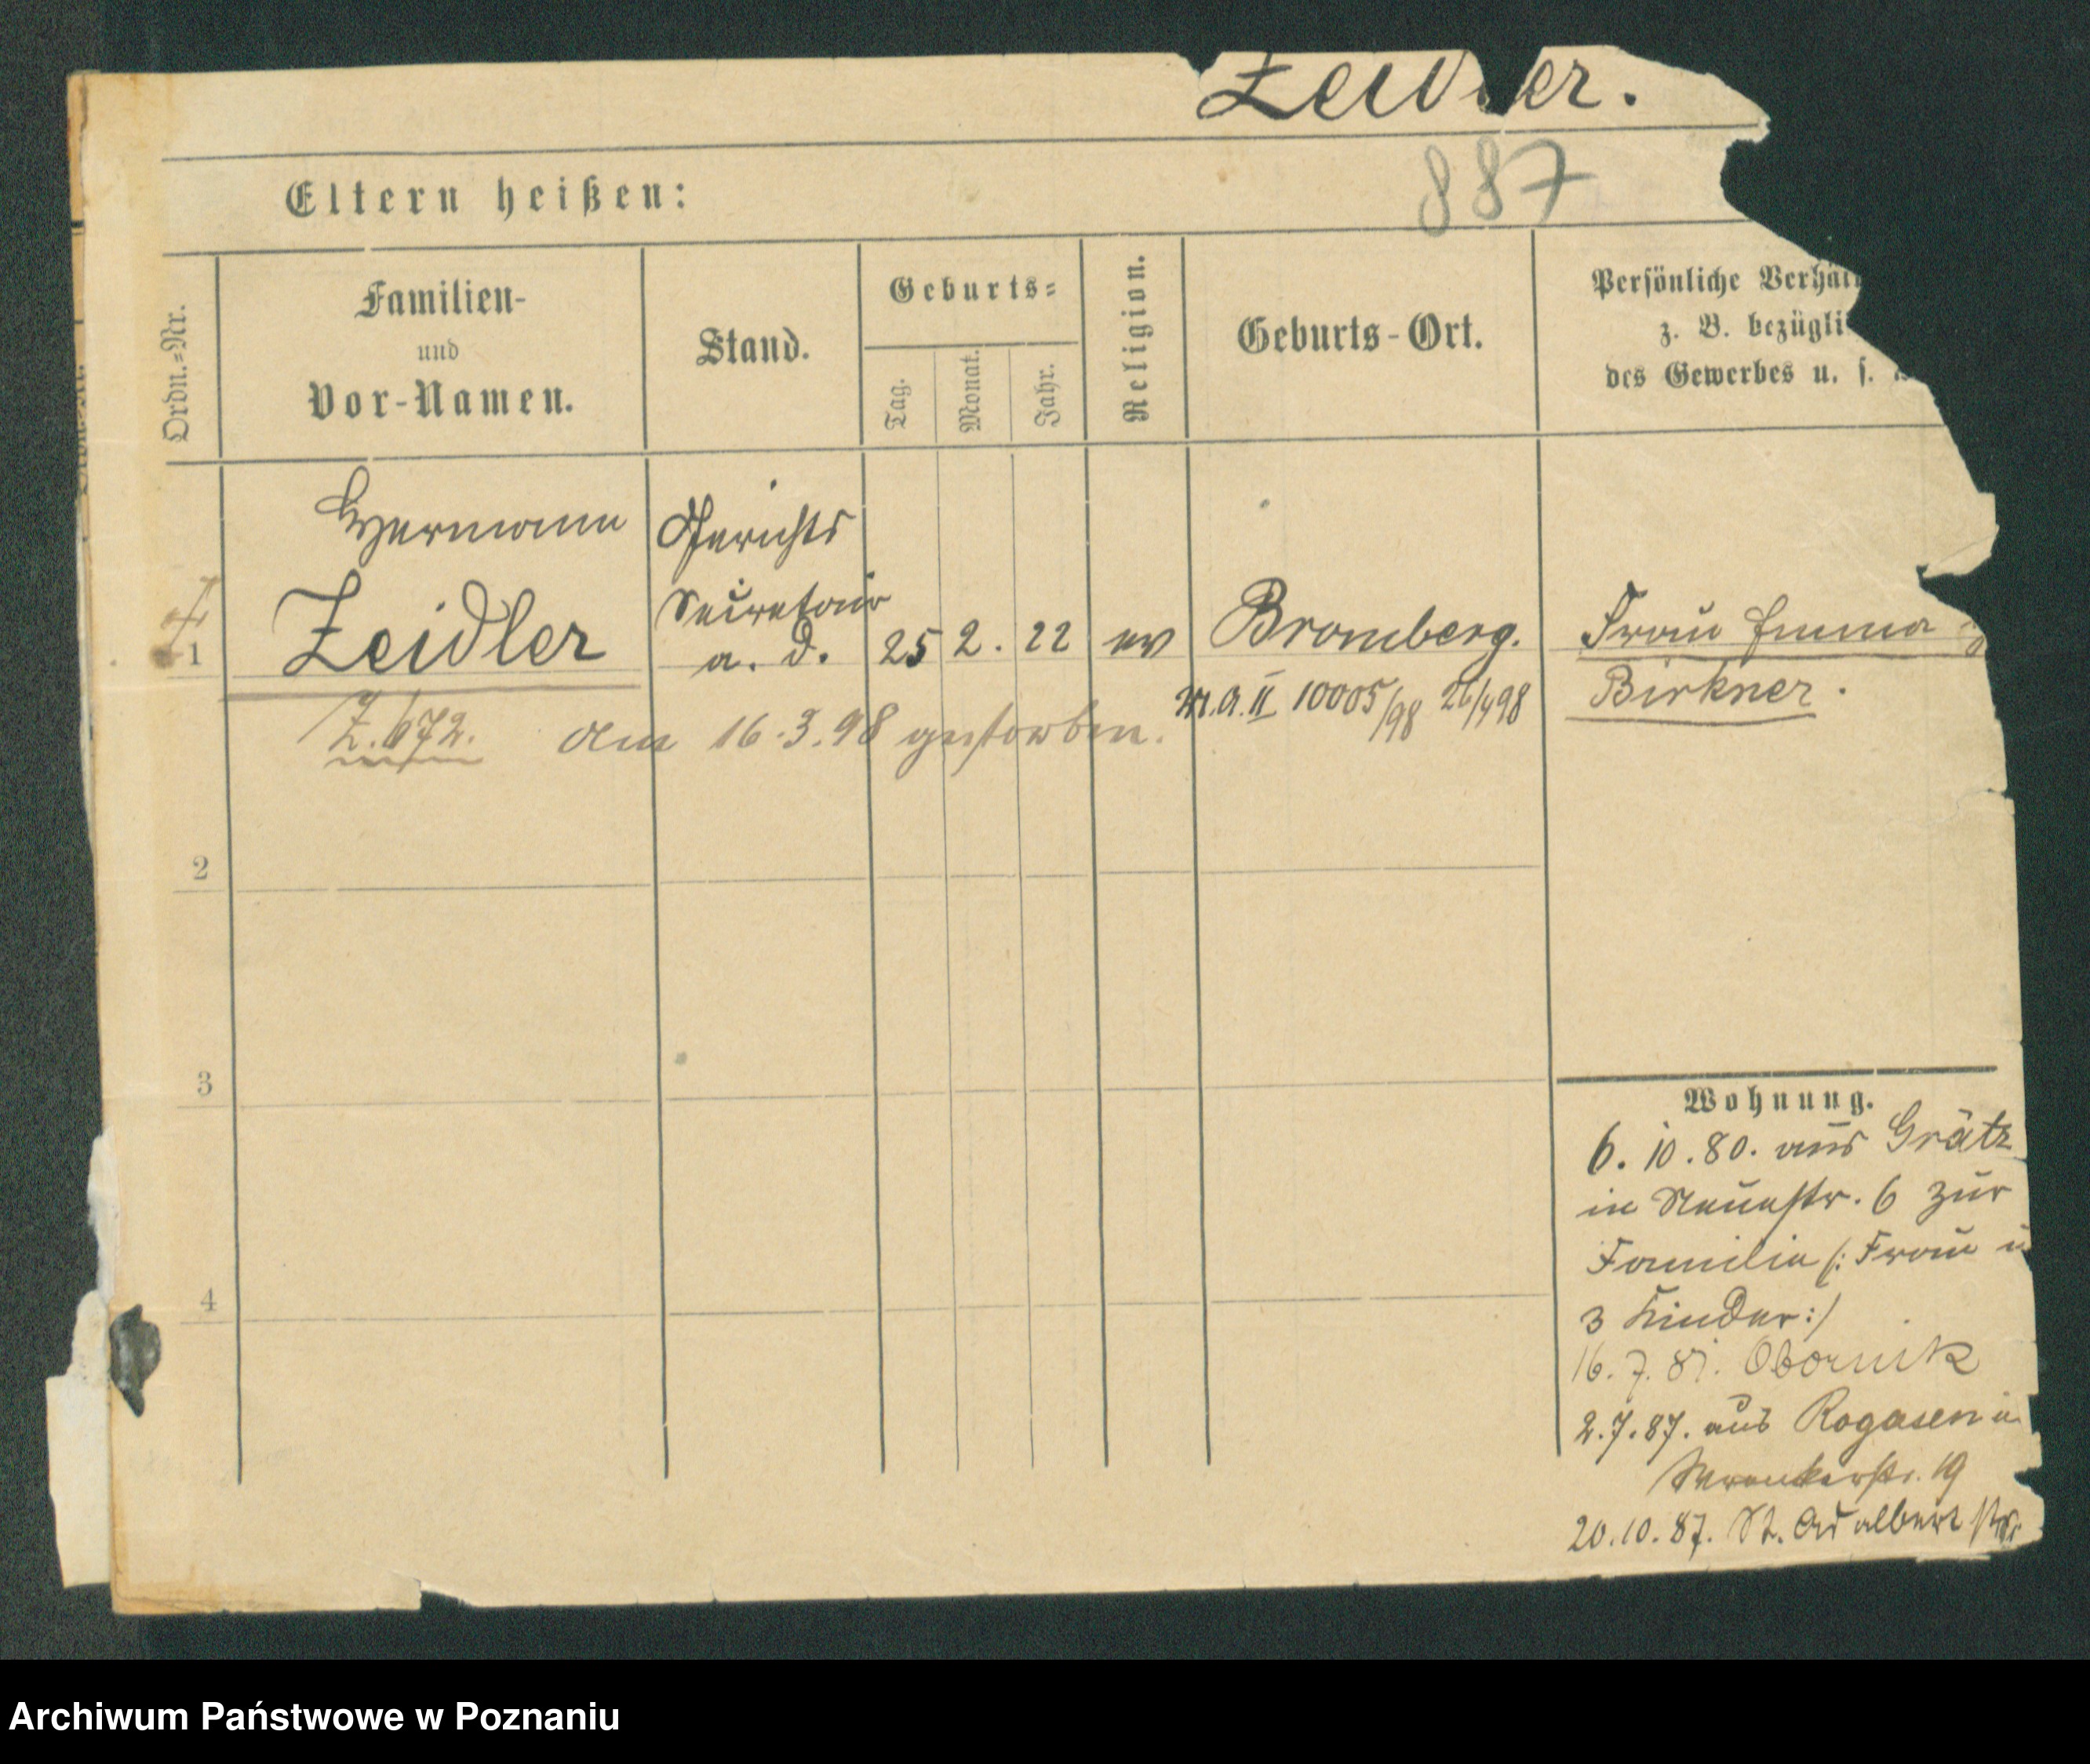 Zeidler.
887
Eltern heißen:
Ordn.=Nr.
Familien-
und
Vor-Namen.
Stand.
Geburts=
Tag.
Monat.
Jahr.
Religion.
Geburts-Ort.
Persönliche Verhält
z. B. bezügli
des Gewerbes u. s.
1
Hermann
Zeidler
Gerichts
Secretair
a. D.
25
2.
22
ev
Bromberg.
Frau Emma
Birkner.
Z. 672. am 16.3.98 gestorben.
M.A. II 10005/98 26/4 98
2
3
4
Wohnung.
6. 10. 80. aus Grätz
in Neuestr. 6 zur
Familie /: Frau u
3 Kinder :/
16. 7. 81. Obornik
2. 7. 87. aus Rogasen in
Wronkerstr. 19
20. 10. 87. St. Adalbert str.
Archiwum Państwowe w Poznaniu